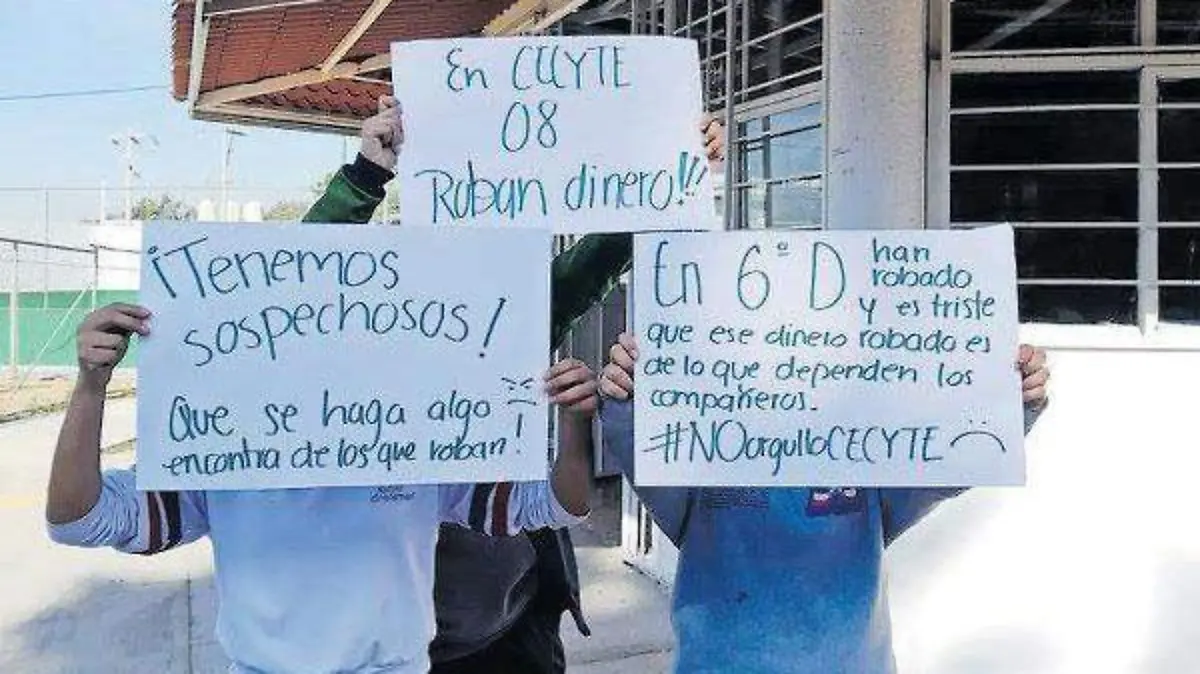 En CECYTE
08
Roban dinero!!!
¡Tenemos
sospechosos!
Que se haga algo
encontra de los que roban!
En 6º D han
robado
y es triste
que ese dinero robado es
de lo que dependen los
compañeros.
#NOorgulloCECYTE